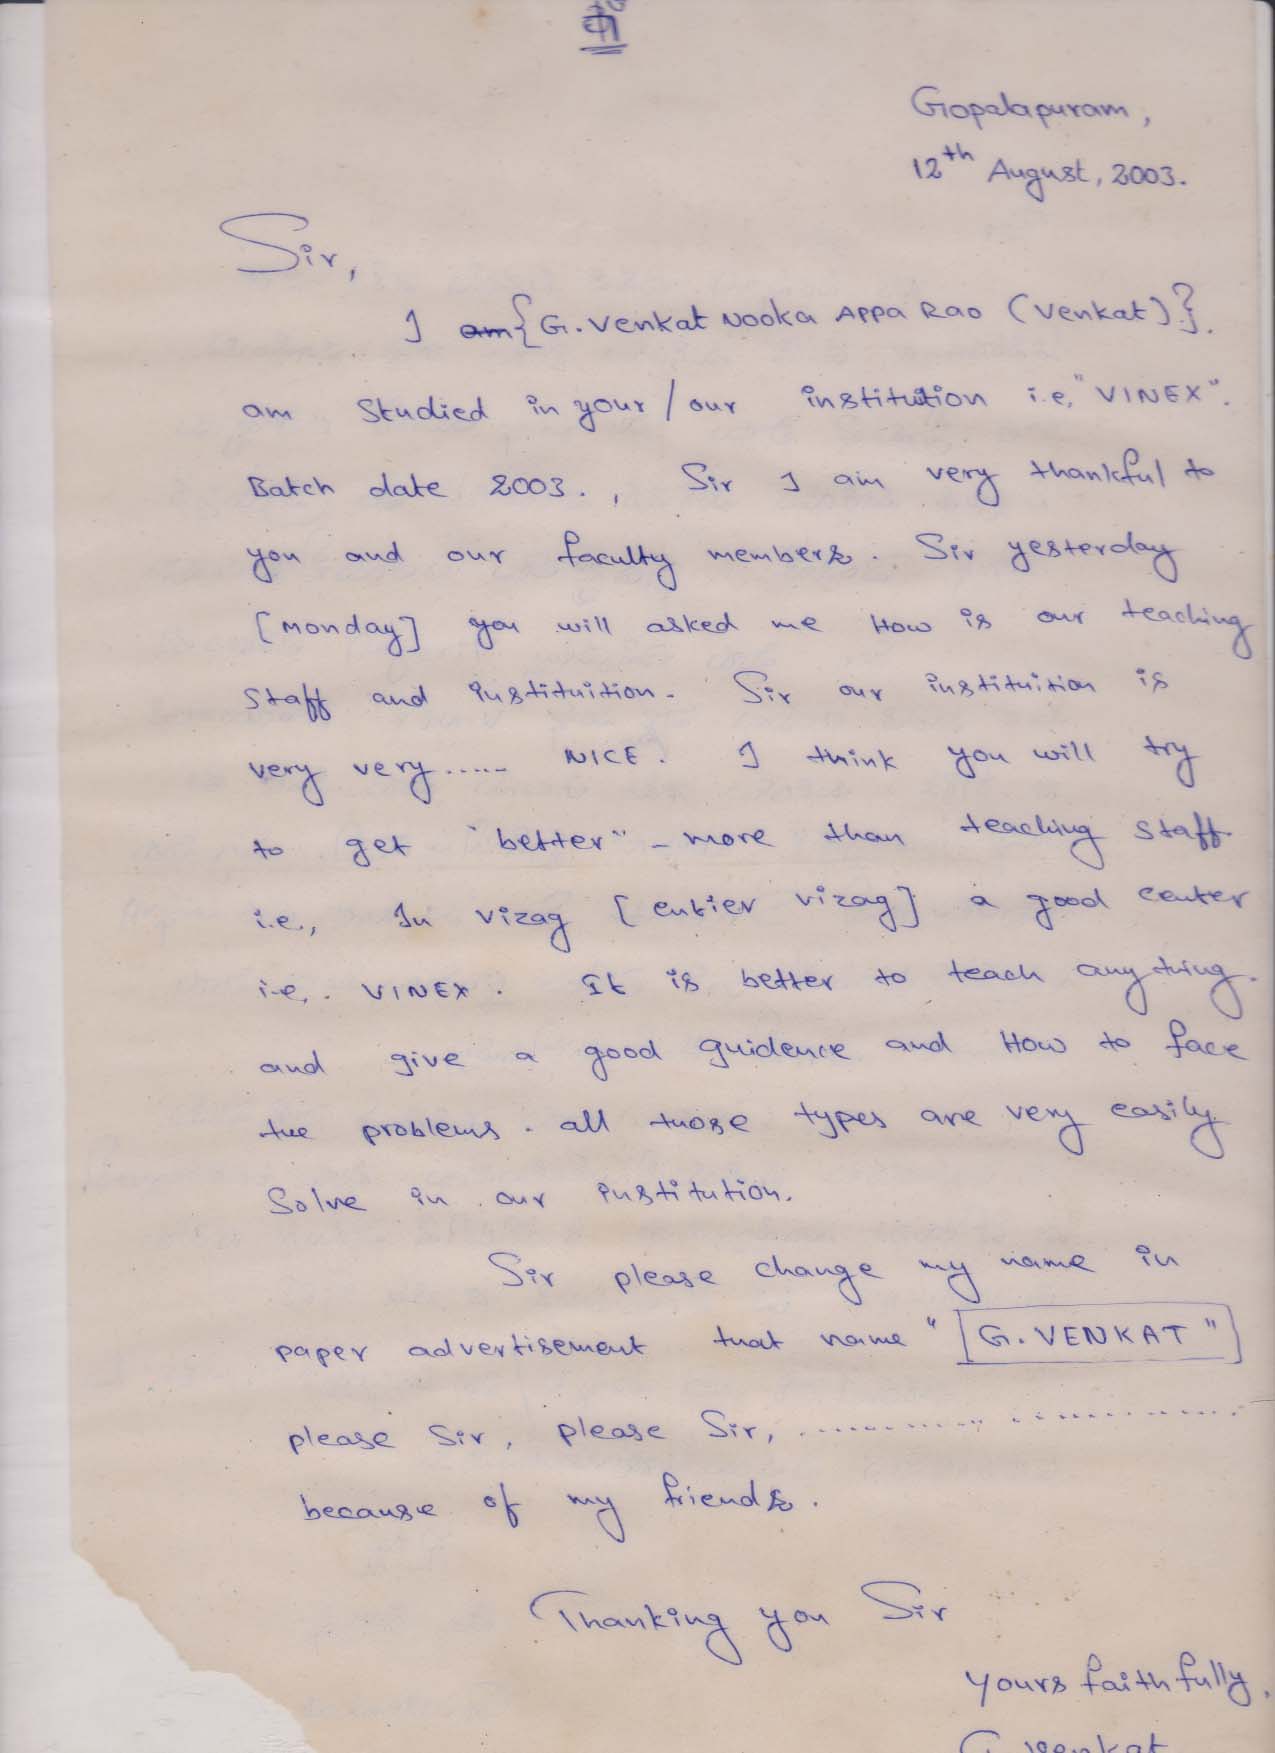 Gopalapuram,
12th August, 2003.
Sir,
I am {G. Venkat Nooka Appa Rao (Venkat)}.
am Studied in your / our institution i.e, "VINEX".
Batch date 2003. , Sir I am very thankful to
you and our faculty members. Sir yesterday
[Monday] you will asked me How is our teaching
Staff and instituition. Sir our instituition is
very very ..... NICE. I think you will try
to get "better" - more than teaching Staff
i.e., In Vizag [entier vizag] a good center
i.e,. VINEX. It is better to teach anything.
and give a good guidence and How to face
the problems. all those types are very easily
Solve in our institution.
Sir please change my name in
paper advertisement that name "G. VENKAT"
please Sir, please Sir, ..........................
because of my friends.
Thanking you Sir
yours faithfully,
G. Venkat